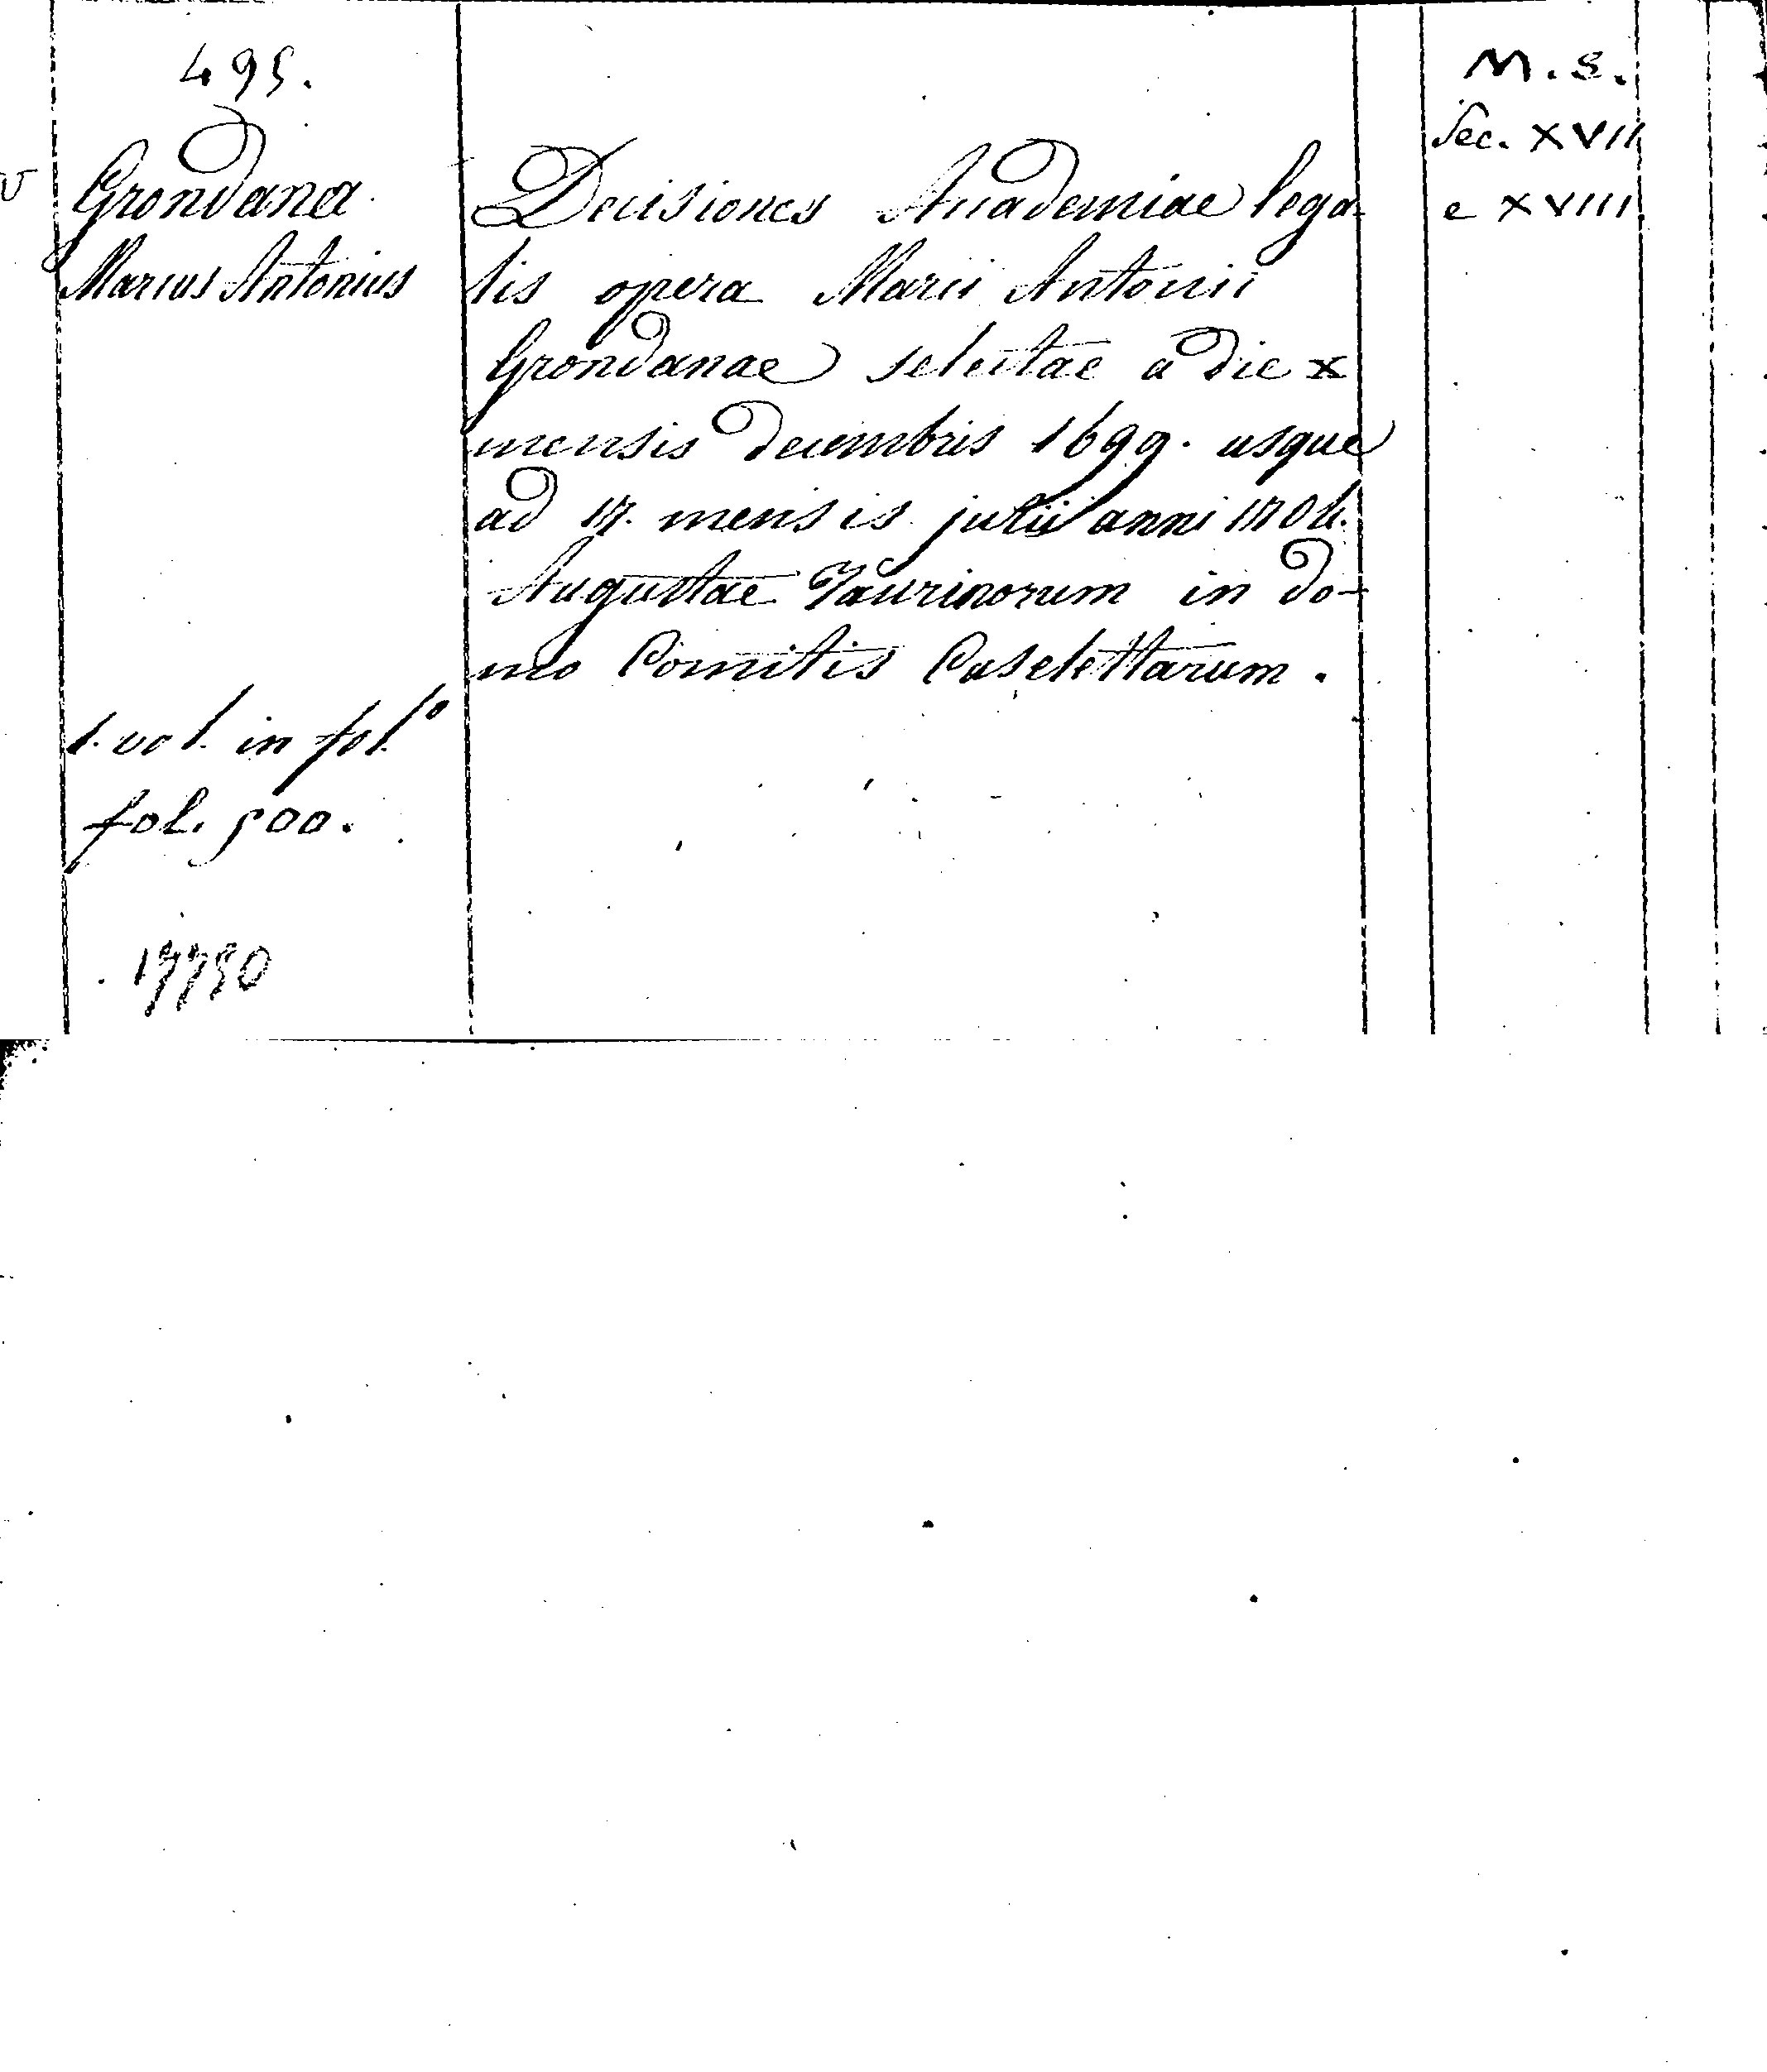 495.
Grondana
Marius Antonius
1. vol. in fol.º
fol. 500.
17750
Decisiones Academiae lega-
lis opera Marii Antonii
Grondanae selectae a die x
mensis decembris 1699. usque
ad 17. mensis julii anni 1704.
Augustae Taurinorum in do-
mo Comitis Caselettarum.
M.S.
Sec. XVII
e XVIII.